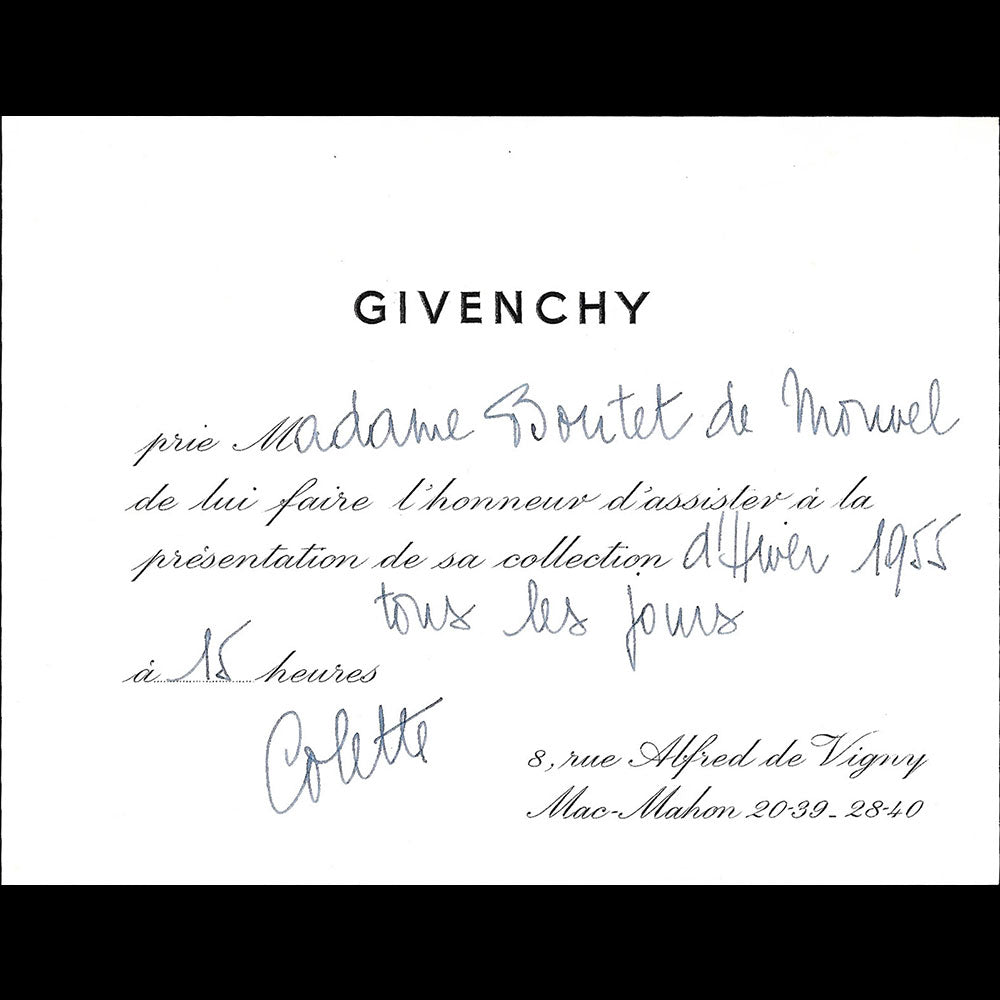 GIVENCHY
prie Madame Boutet de Monvel
de lui faire l'honneur d'assister à la
présentation de sa collection d'Hiver 1955
tous les jours
à 15 heures
Colette
8, rue Alfred de Vigny
Mac-Mahon 20-39 _ 28-40